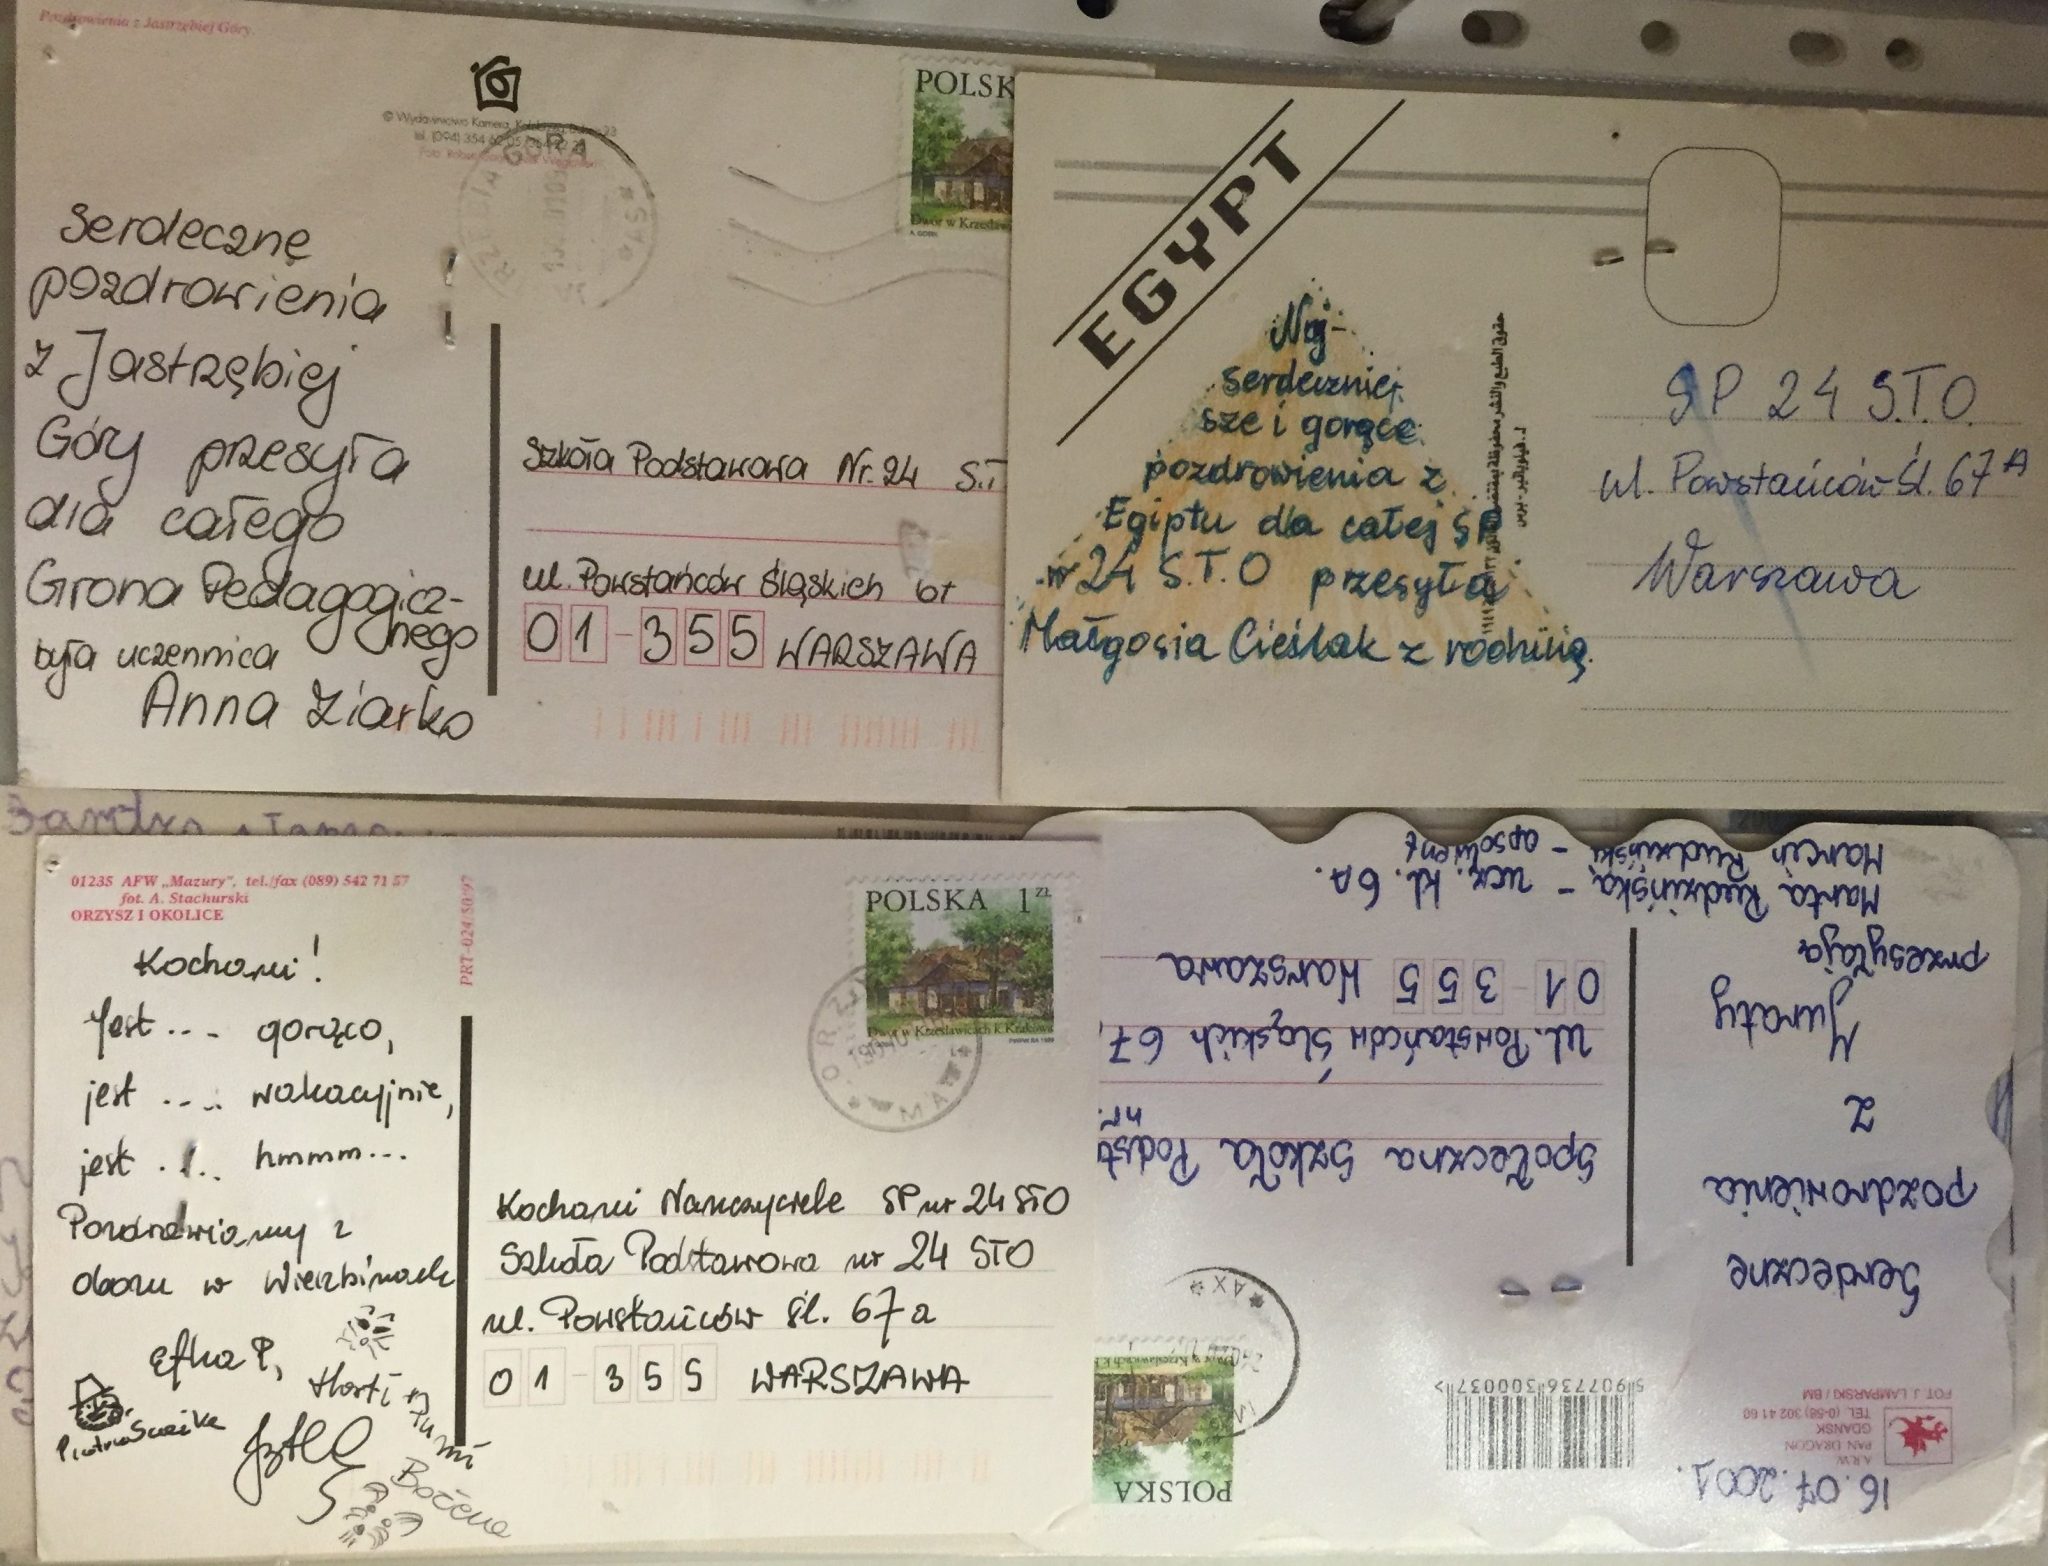 Pozdrowienia z Jastrzębiej Góry
© Wydawnictwo Kamera,
tel. (094) 354
GÓRA
Serdeczne
pozdrowienia
z Jastrzębiej
Góry przesyła
dla całego
Grona Pedagogicz-
nego
była uczennica
Anna Ziarko
POLSK
Dwór w Krzesław
Szkoła Podstawowa Nr. 24 S.T
ul. Powstańców Śląskich 67
01-355 WARSZAWA
EGYPT
Naj-
serdeczniej
sze i gorące
pozdrowienia z
Egiptu dla całej SP
nr 24 S.T.O przesyła
Małgosia Cieślak z rodziną.
SP 24 S.T.O.
ul. Powstańców Śl. 67A
Warszawa
01235 AFW „Mazury”, tel./fax (089) 542 71 57
fot. A. Stachurski
ORZYSZ I OKOLICE
PRT-024/50/97
Kochani!
Jest ... gorąco,
jest .... wakacyjnie,
jest .... hmmm...
Pozdrawiamy z
obozu w Wierzbinach
Efka P,
Bożena
POLSKA 1 ZŁ
Dwór w Krzesławicach k. Krakowa
Kochani Nauczyciele SP nr 24 STO
Szkoła Podstawowa nr 24 STO
ul. Powstańców Śl. 67a
01-355 WARSZAWA
16.07.2001.
A.R.W.
PAN DRAGON
GDAŃSK
TEL. (0-58) 302 41 60
FOT. J. LAMPARSKI / BM
5 907736 300037 >
POLSKA
Serdeczne
pozdrowienia
z
Juraty
przesyłają
Marta Rudzińska - ucz. kl. 6A.
Marcin Rudziński - absolwent
Społeczna Szkoła Podst
nr.
ul. Powstańców Śląskich 67,
01-355 Warszawa